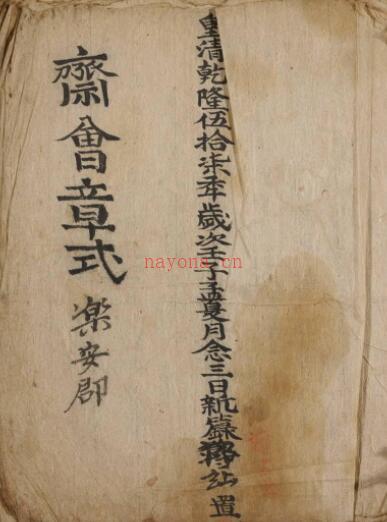 皇清乾隆伍拾柒年歲次壬子孟夏月念三日新籙置
齋會章式
樂安郡
nayona.cn